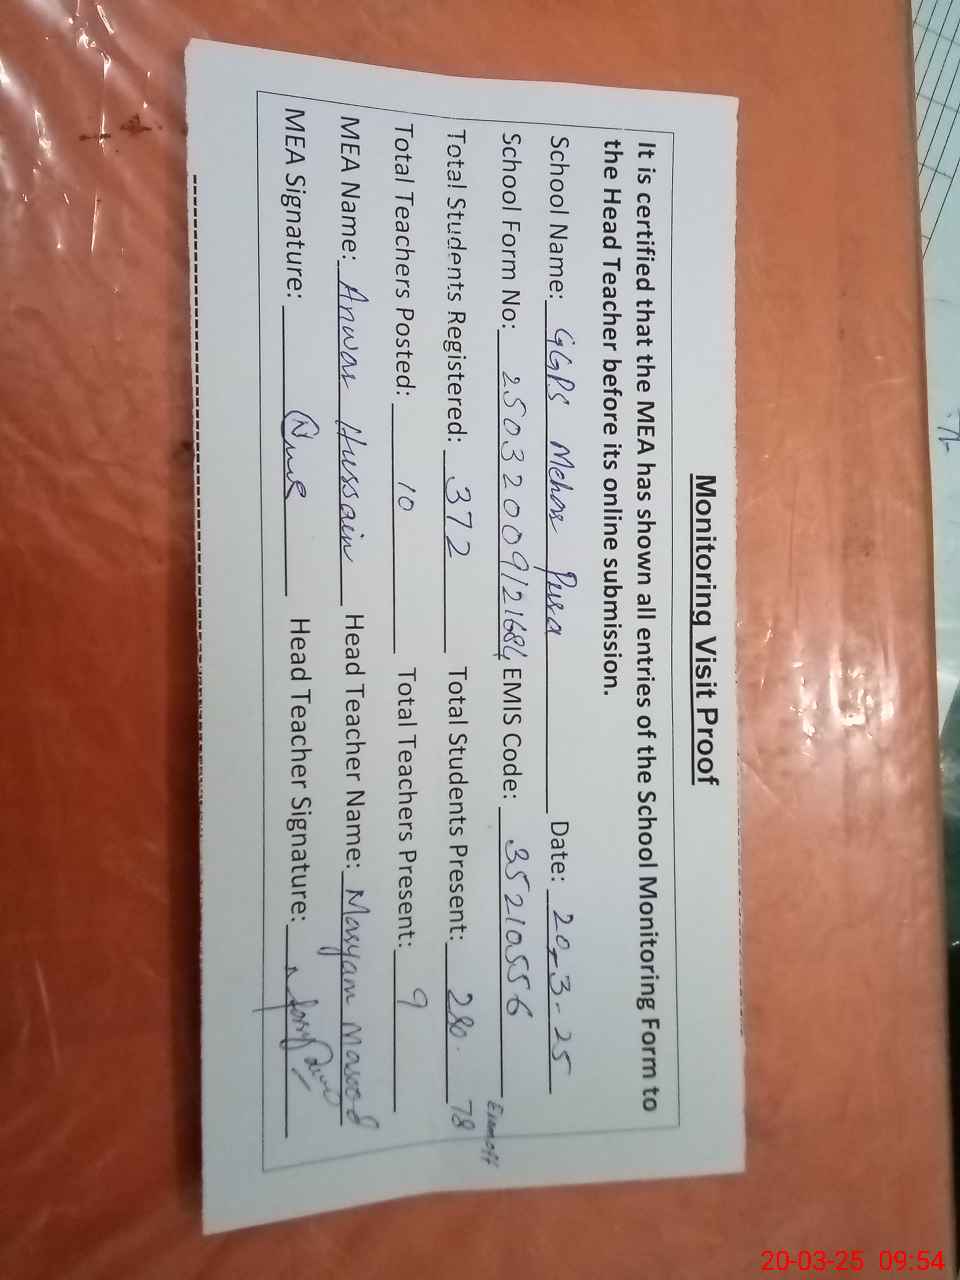 Monitoring Visit Proof
It is certified that the MEA has shown all entries of the School Monitoring Form to
the Head Teacher before its online submission.
School Name: GGPS Mehar Pura Date: 20-3-25
School Form No: 25032009121684 EMIS Code: 35210556
Exam off
Total Students Registered: 372 Total Students Present: 280. 78
Total Teachers Posted: 10 Total Teachers Present: 9
MEA Name: Anwar Hussain Head Teacher Name: Maryam Masood
MEA Signature: Head Teacher Signature:
20-03-25 09:54